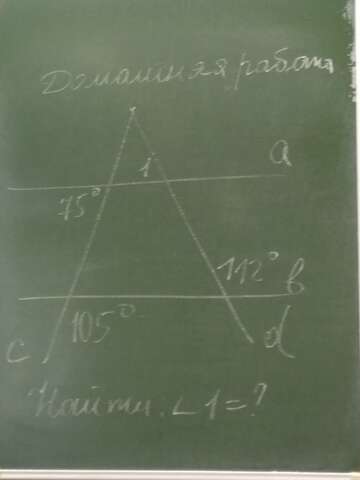 Домашняя работа
a
1
75°
112°
в
105°
c
d
Найти: ∠1=?